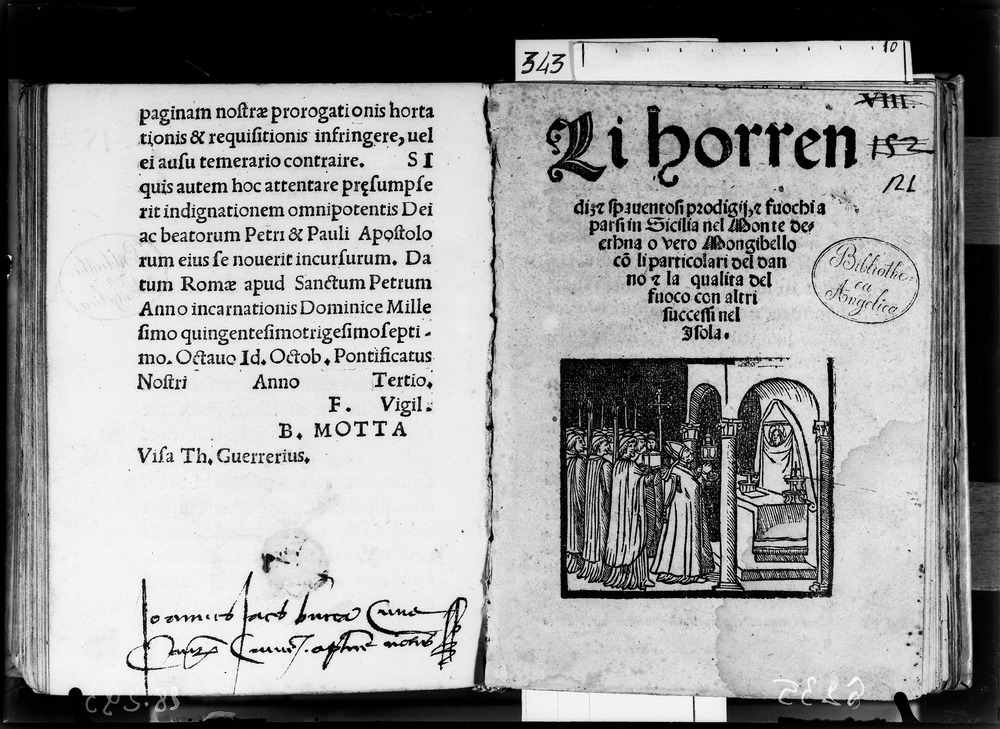 343
10
paginam noſtræ prorogationis horta
tionis & requiſitionis infringere, uel
ei auſu temerario contraire. SI
quis autem hoc attentare pręſumpſe
rit indignationem omnipotentis Dei
ac beatorum Petri & Pauli Apoſtolo
rum eius ſe nouerit incurſurum. Da
tum Romæ apud Sanctum Petrum
Anno incarnationis Dominice Mille
ſimo quingenteſimotrigeſimoſepti-
mo. Octauo Id. Octob. Pontificatus
Noſtri Anno Tertio.
F. Vigil.
B. MOTTA
Viſa Th. Guerrerius.
VIII.
Li horren
152
121
di, ⁊ ſpauentoſi prodigij, ⁊ fuochi a
parſi in Sicilia nel Monte de
ethna o vero Mongibello
cō li particolari del dan
no ⁊ la qualita del
fuoco con altri
ſucceſſi nel
Iſola.
Bibliothe
ca
Angelica
6235